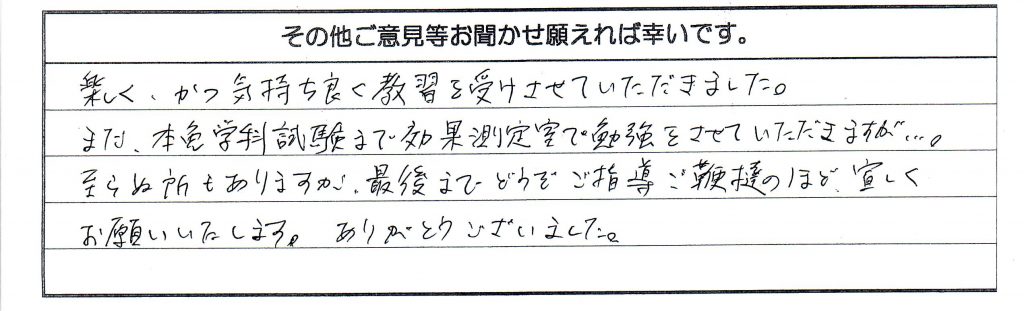 その他ご意見等お聞かせ願えれば幸いです。
楽しく、かつ気持ち良く教習を受けさせていただきました。
まだ、本免学科試験まで効果測定室で勉強をさせていただきますが…。
至らぬ所もありますが、最後までどうぞご指導ご鞭撻のほど、宜しく
お願いいたします。ありがとうございました。